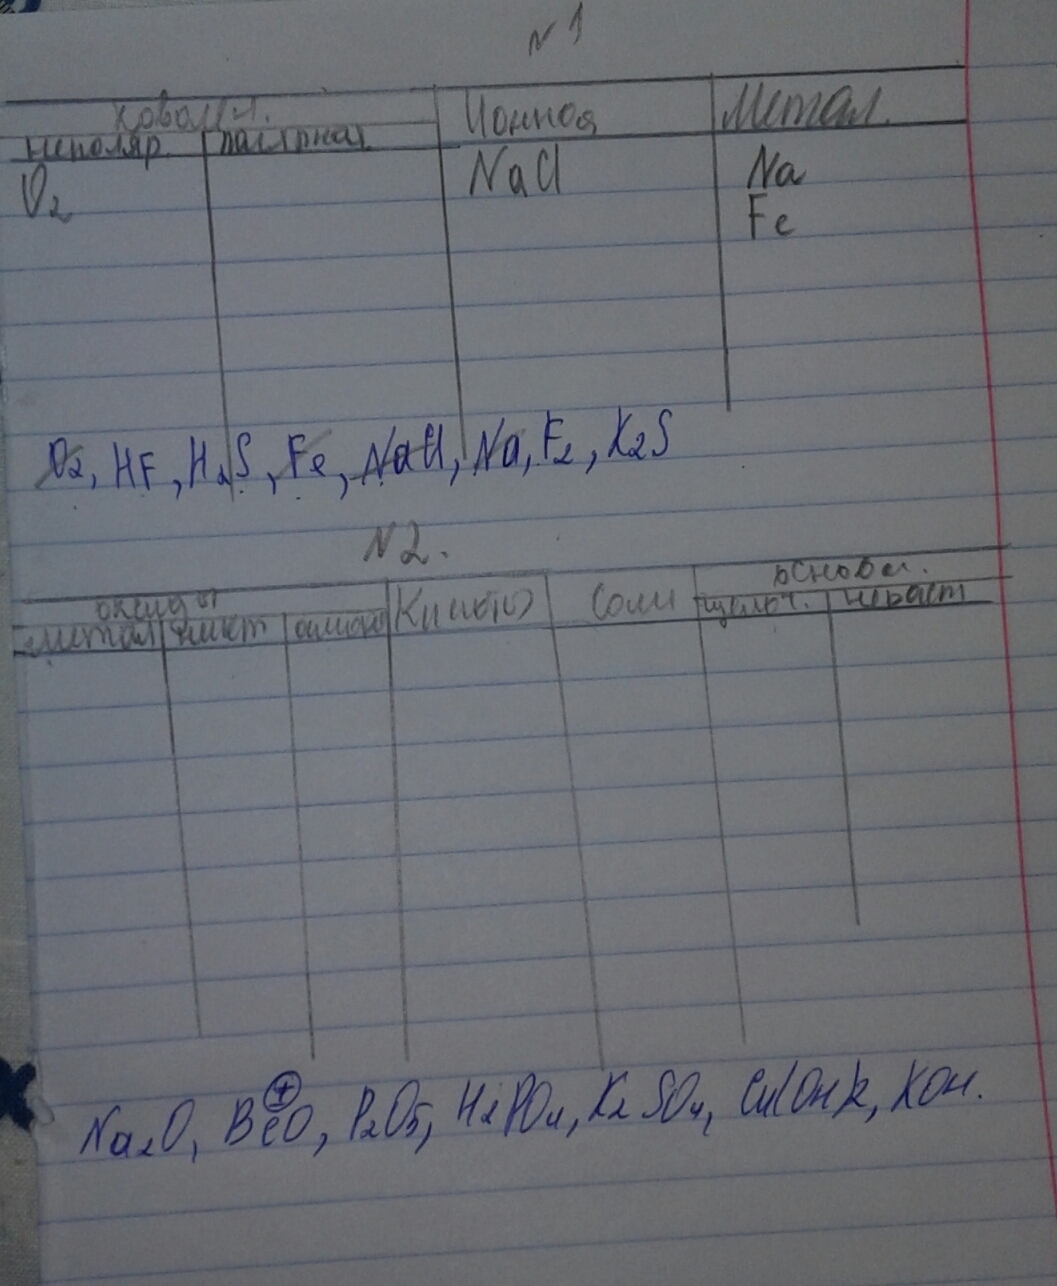 N 1
Ковален. Ионная Метал.
неполяр. полярная
O₂ NaCl Na
Fe
O₂, HF, H₂S, Fe, NaCl, Na, F₂, K₂S
N 2.
оксиды Кислоты Соли основан.
метал щелоч. нераст
Na₂O, BeO, P₂O₅, H₂PO₄, K₂SO₄, Cu(OH)₂, KOH.